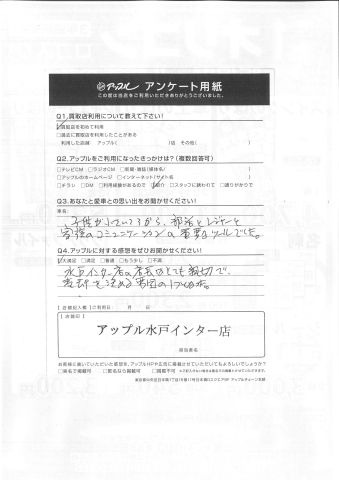 アップル アンケート用紙
この度は当店をご利用いただきありがとうございました。
Q1.買取店利用について教えて下さい!
☑買取店を初めて利用
□過去に買取店を利用したことがある
利用した店舗 アップル( )店 その他( )
Q2.アップルをご利用になったきっかけは?(複数回答可)
□テレビCM □ラジオCM □新聞・雑誌(媒体名/ )
□アップルのホームページ □インターネット(サイト名 )
□チラシ □DM □利用経験があるので ☑紹介 □スタッフに誘われて □通りがかりで
Q3.あなたと愛車との思い出をお聞かせください!
車名:
子供が小さいころから、部活とレジャーと
家族のコミュニケーションの重要なツールでした。
Q4.アップルに対する感想をぜひお聞かせください!
☑大満足 □満足 □普通 □もう少し □不満
水戸インター店の店長がとても親切で、
売却を決める要因の1つでした。
【店舗記入欄】ご利用日: 月 日
【店舗印】
アップル水戸インター店
担当者名:
お客様に書いていただいた感想を、アップルHPや広告に掲載させていただいてもよろしいでしょうか?
□実名で掲載可 □匿名なら掲載可 □掲載不可